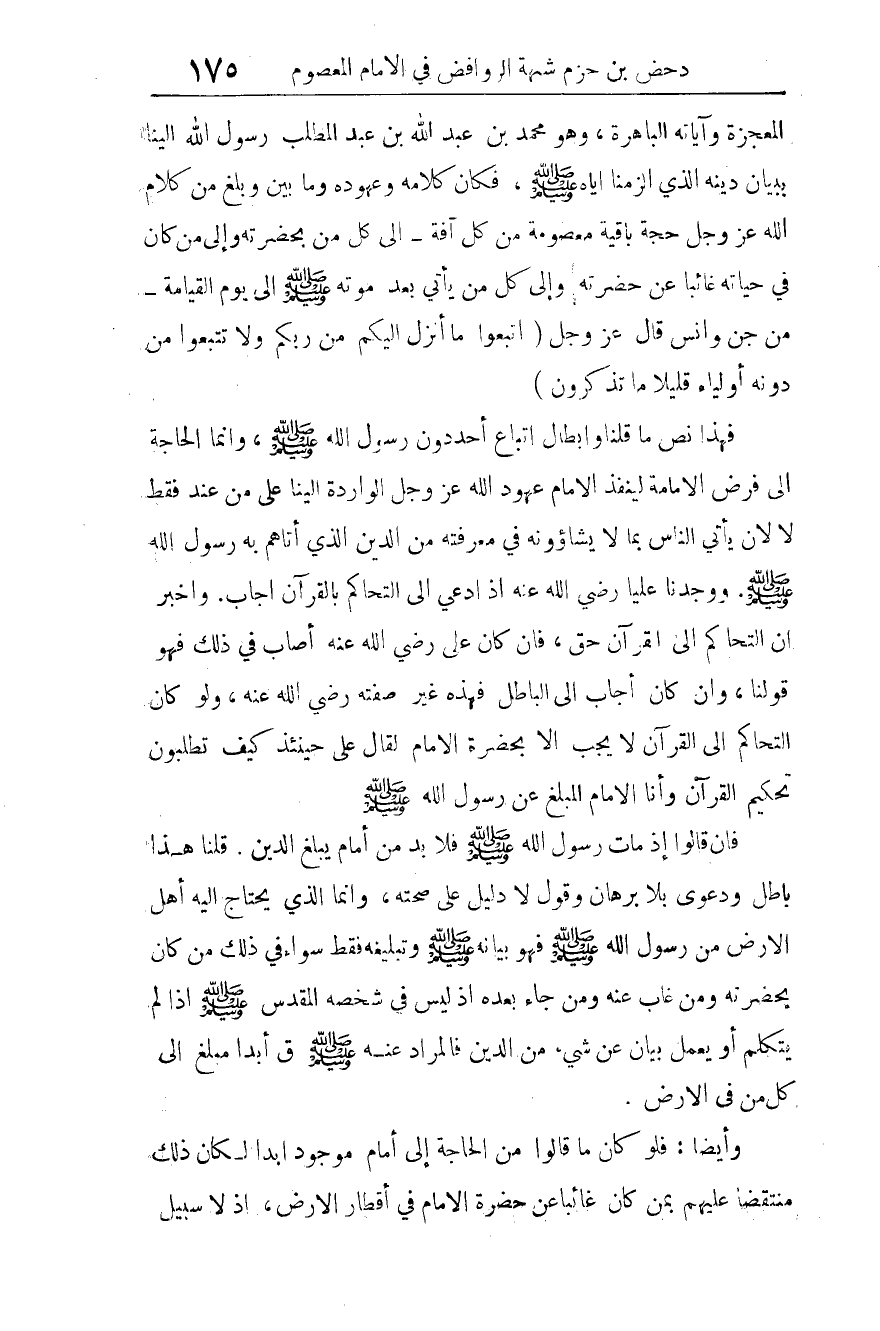 دحض بن حزم شبهة الروافض في الامام المعصوم ١٧٥
المعجزة وآياته الباهرة ، وهو محمد بن عبد الله بن عبد المطلب رسول الله الينا
ببيان دينه الذي الزمنا اياه ﷺ ، فكان كلامه وعهوده وما بين وبلغ من كلام
الله عز وجل حجة باقية معصومة من كل آفة ـ الى كل من بحضرته وإلى من كان
في حياته غائبا عن حضرته وإلى كل من يأتي بعد موته ﷺ الى يوم القيامة ـ
من جن وانس قال عز وجل ( اتبعوا ما أنزل اليكم من ربكم ولا تتبعوا من
دونه أولياء قليلا ما تذكرون )
فهذا نص ما قلنا وابطال اتباع أحد دون رسول الله ﷺ ، وانما الحاجة
الى فرض الامامة لينفذ الامام عهود الله عز وجل الواردة الينا على من عند فقط
لا لان يأتي الناس بما لا يشاؤونه في معرفته من الدين الذي أتاهم به رسول الله
ﷺ . ووجدنا عليا رضي الله عنه اذ ادعي الى التحاكم بالقرآن اجاب. واخبر
ان التحاكم الى القرآن حق ، فان كان على رضي الله عنه أصاب في ذلك فهو
قولنا ، وان كان أجاب الى الباطل فهذه غير صفته رضي الله عنه ، ولو كان
التحاكم الى القرآن لا يجب الا بحضرة الامام لقال على حينئذ كيف تطلبون
تحكيم القرآن وأنا الامام المبلغ عن رسول الله ﷺ
فان قالوا إذ مات رسول الله ﷺ فلا بد من أمام يبلغ الدين . قلنا هـذا
باطل ودعوى بلا برهان وقول لا دليل على صحته ، وانما الذي يحتاج اليه أهل
الارض من رسول الله ﷺ فهو بيانه ﷺ وتبليغه فقط سواء في ذلك من كان
بحضرته ومن غاب عنه ومن جاء بعده اذ ليس في شخصه المقدس ﷺ اذا لم
يتكلم أو يعمل بيان عن شيء من الدين فالمراد عنـه ﷺ ق أبدا مبلغ الى
كل من فى الارض .
وأيضا : فلو كان ما قالوا من الحاجة إلى أمام موجود ابدا لـكان ذلك
منتقضا عليهم بمن كان غائبا عن حضرة الامام في أقطار الارض ، اذ لا سبيل